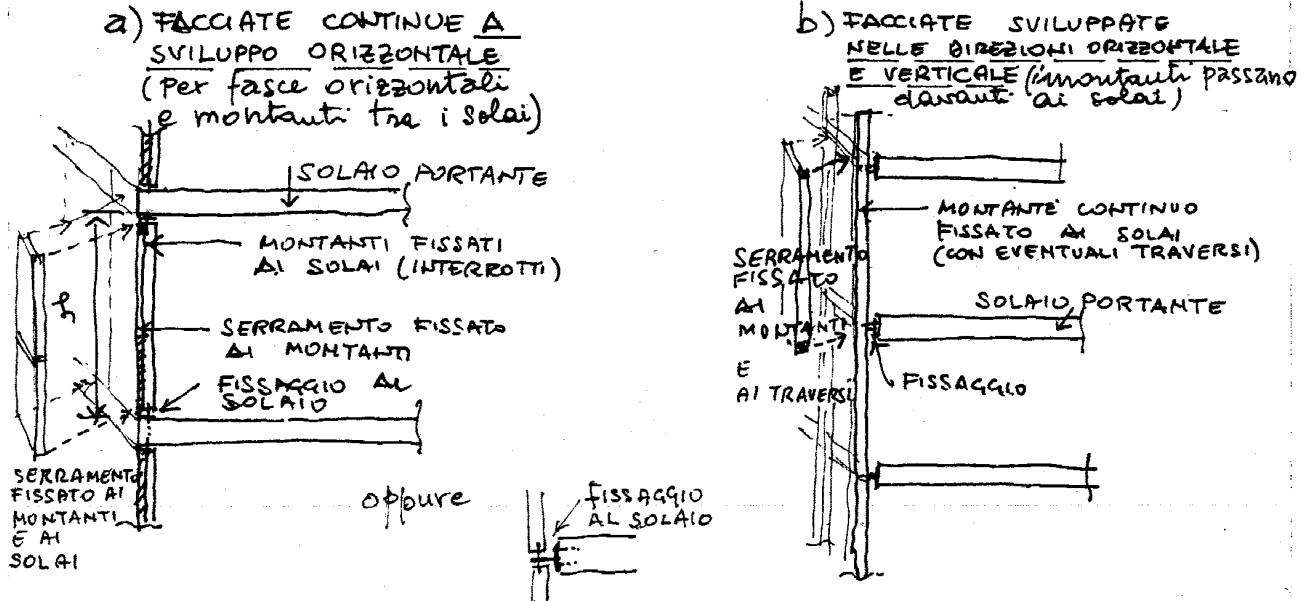 a) FACCIATE CONTINUE A
SVILUPPO ORIZZONTALE
(per fasce orizzontali
e montanti tra i solai)
SOLAIO PORTANTE
MONTANTI FISSATI
AI SOLAI (INTERROTTI)
h
SERRAMENTO FISSATO
AI MONTANTI
FISSAGGIO AL
SOLAIO
SERRAMENTO
FISSATO AI
MONTANTI
E AI
SOLAI
oppure
FISSAGGIO
AL SOLAIO
b) FACCIATE SVILUPPATE
NELLE DIREZIONI ORIZZONTALE
E VERTICALE (i montanti passano
davanti ai solai)
MONTANTE CONTINUO
FISSATO AI SOLAI
(CON EVENTUALI TRAVERSI)
SERRAMENTO
FISSATO
AI
MONTANTI
E
AI TRAVERSI
SOLAIO PORTANTE
FISSAGGIO